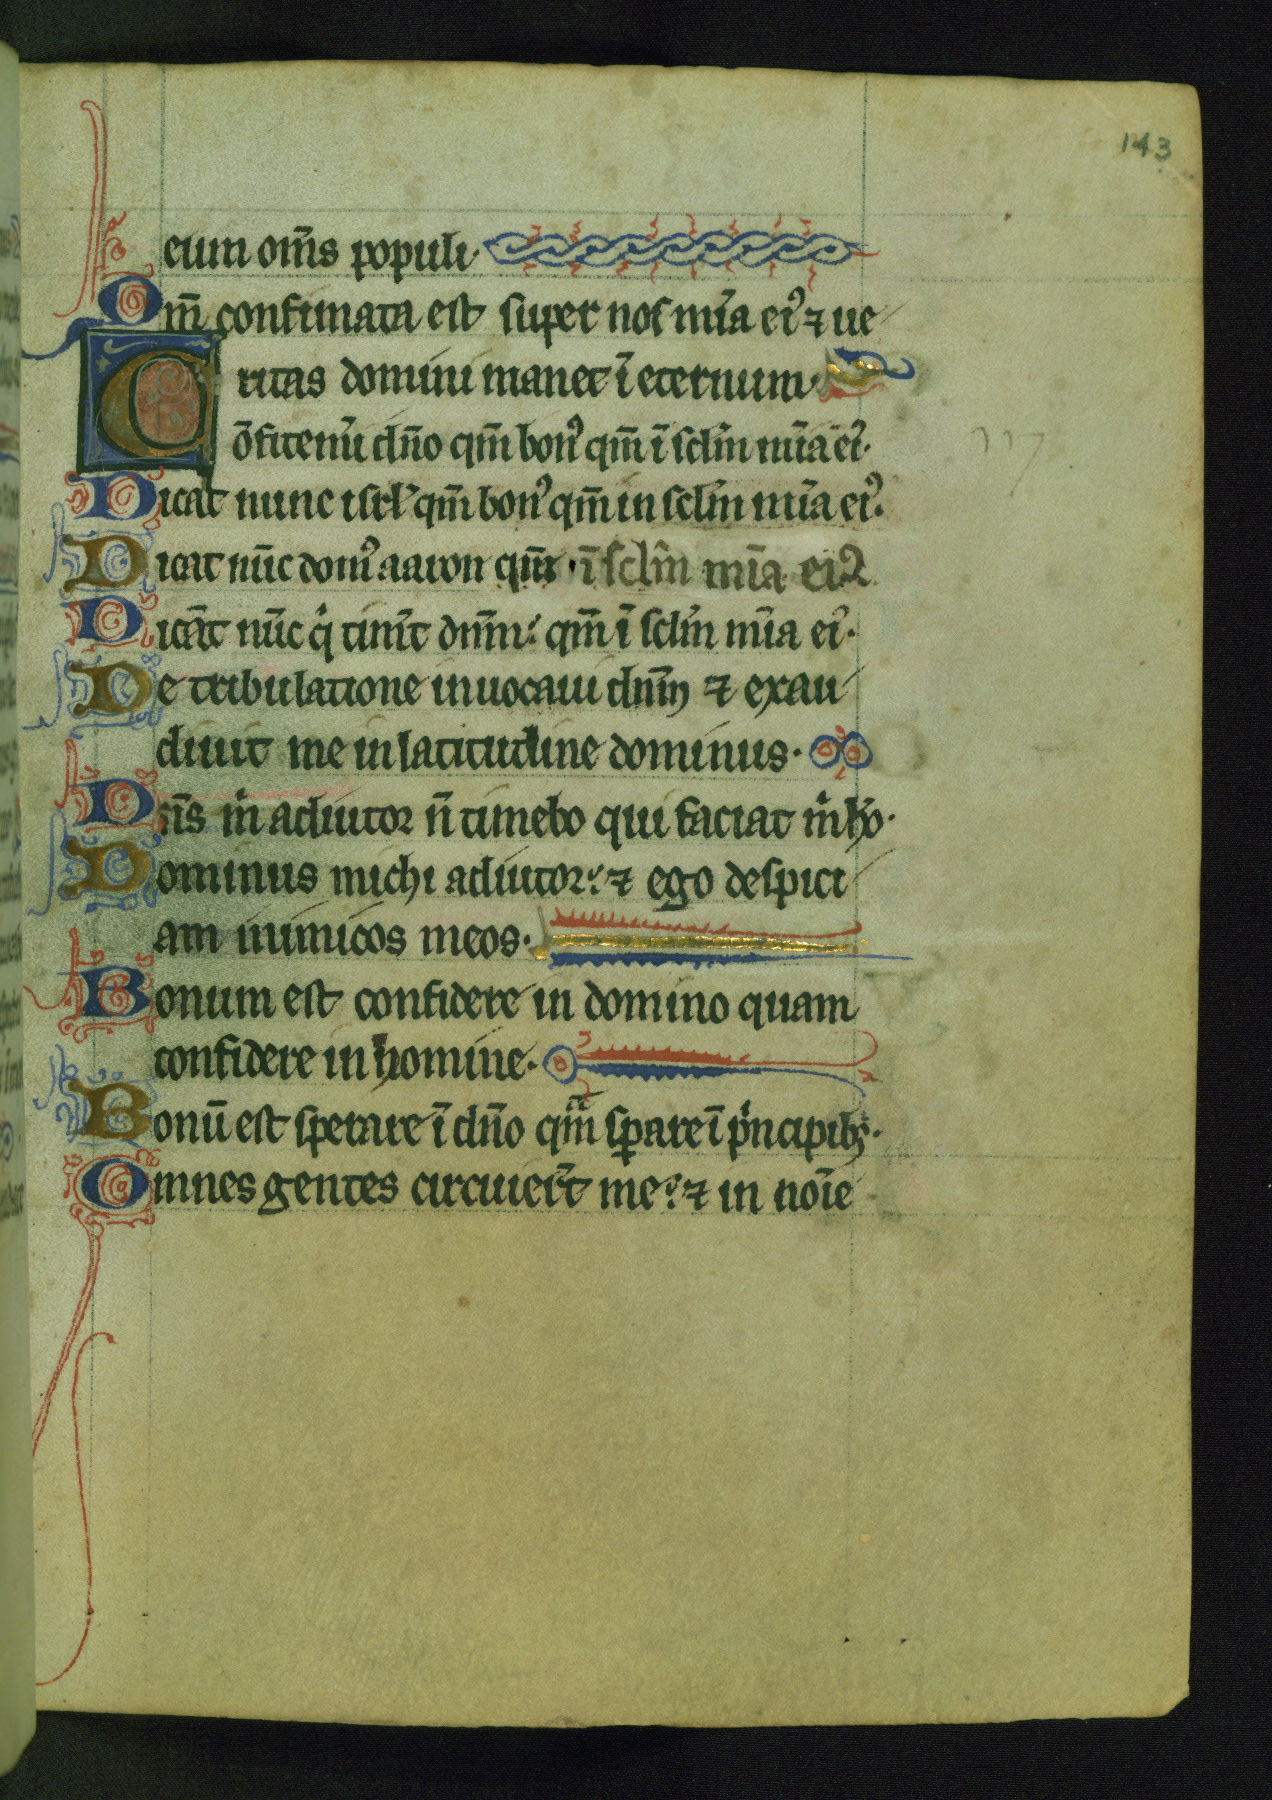 143
eum om̄s populi·
Qm̄ confirmata est super nos mīa ei᾽ ⁊ ue
ritas domini manet ī eternum·
Cōfitemī dn̄o qm̄ bon᾽ qm̄ ī sclm̄ mīa ei᾽·
117
Dicat nunc isrl᾽ qm̄ bon᾽ qm̄ in sclm̄ mīa ei᾽·
Dicat nūc dom᾽ aaron qm̄ · ī sclm̄ mīa ei᾽
Dicāt nūc qͥ timēt dn̄m: qm̄ ī sclm̄ mīa ei᾽·
De tribulatione inuocaui dn̄m ⁊ exau
diuit me in latitudine dominus·
Dn̄s mͥ adiutor n̄ timebo qui faciat mͥ ho·
Dominus michi adiutor: ⁊ ego despici
am inimicos meos·
Bonum est confidere in domino quam
confidere in homine·
Bonū est sperare ī dn̄o qᵃm̄ sꝑare ī pͥncipibꝫ·
Omnes gentes circuier̄t me: ⁊ in noīe